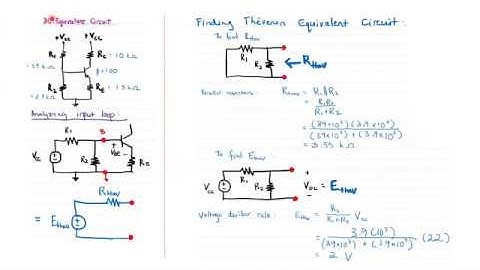 DC Equivalent Circuit:
+Vcc +Vcc
R1 Rc = 10 kΩ
= 39 kΩ
β=100
R2 RE = 1.5 kΩ
= 3.9 kΩ
Analyzing input loop:
R1 B
Vcc R2 VBE RE
+
-
RThev
= EThev
Finding Thévenin Equivalent Circuit:
To find RThev
R1 R2 RThev
Parallel resistors: RThev = R1 || R2
= R1R2
R1 + R2
= (39×10³)(3.9×10³)
(39×10³) + (3.9×10³)
= 3.55 kΩ
To find EThev
R1 +
Vcc R2 Voc = EThev
-
Voltage divider rule: EThev = R2
R1 + R2 Vcc
= 3.9(10³)
(39×10³) + (3.9×10³) (22)
= 2 V